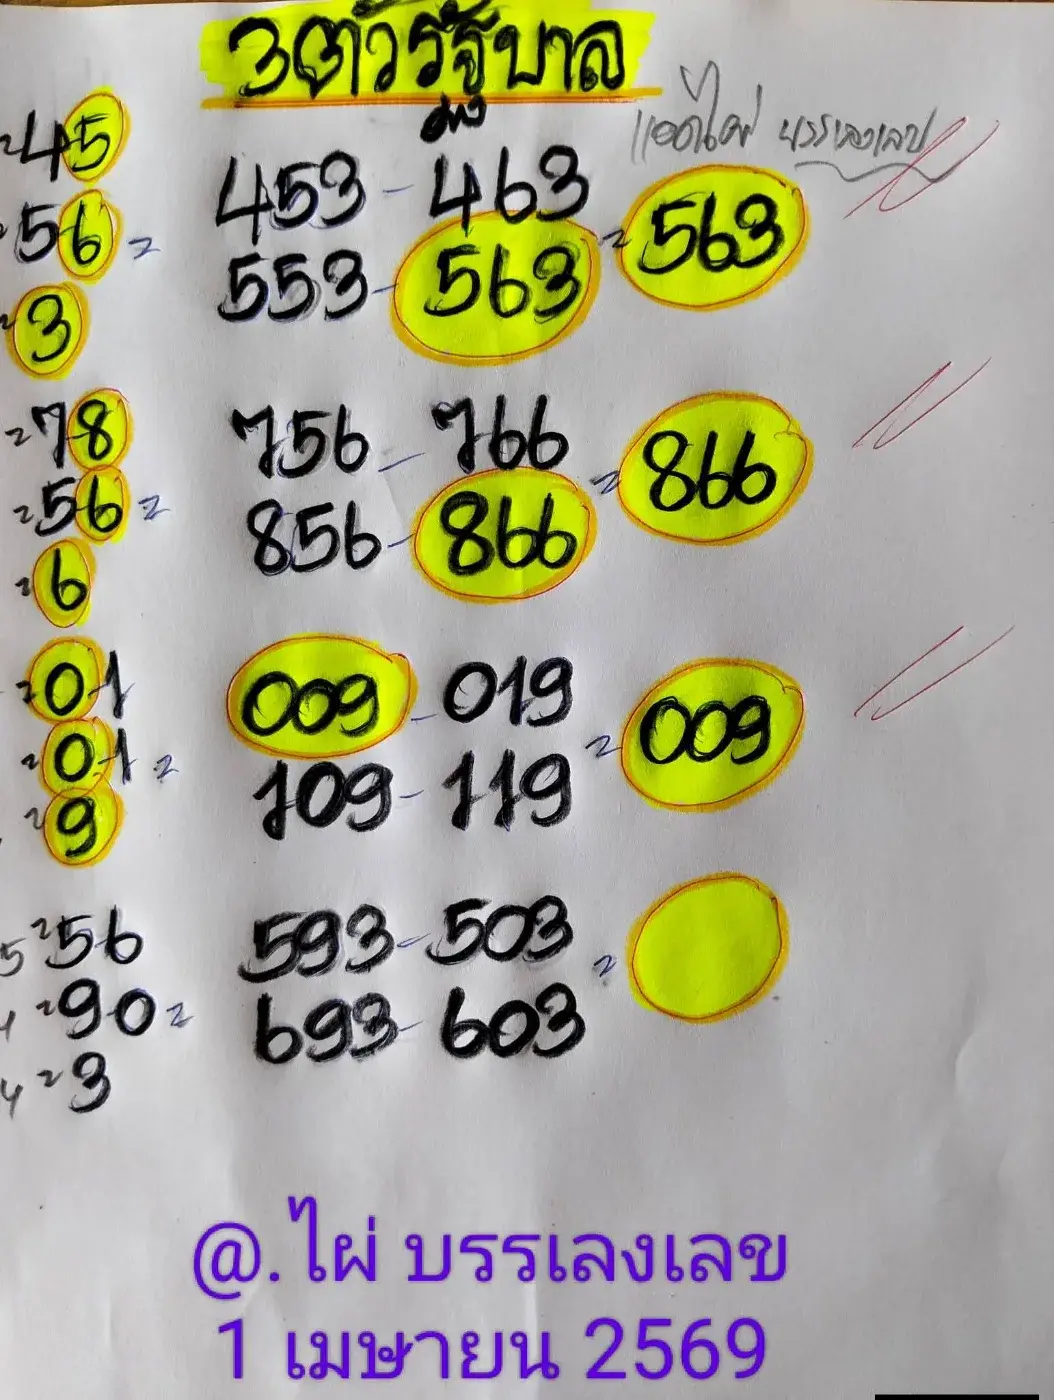 3ตัวรัฐบาล
ตรง
แอดไผ่ บรรเลงเลข
=45
=56=
=3
453-463
553-563=563
=78
=56=
=6
756-766
856-866=866
=01
=01=
=9
009-019
109-119=009
5=56
4=90=
4=3
593-503
693-603=
@.ไผ่ บรรเลงเลข
1 เมษายน 2569